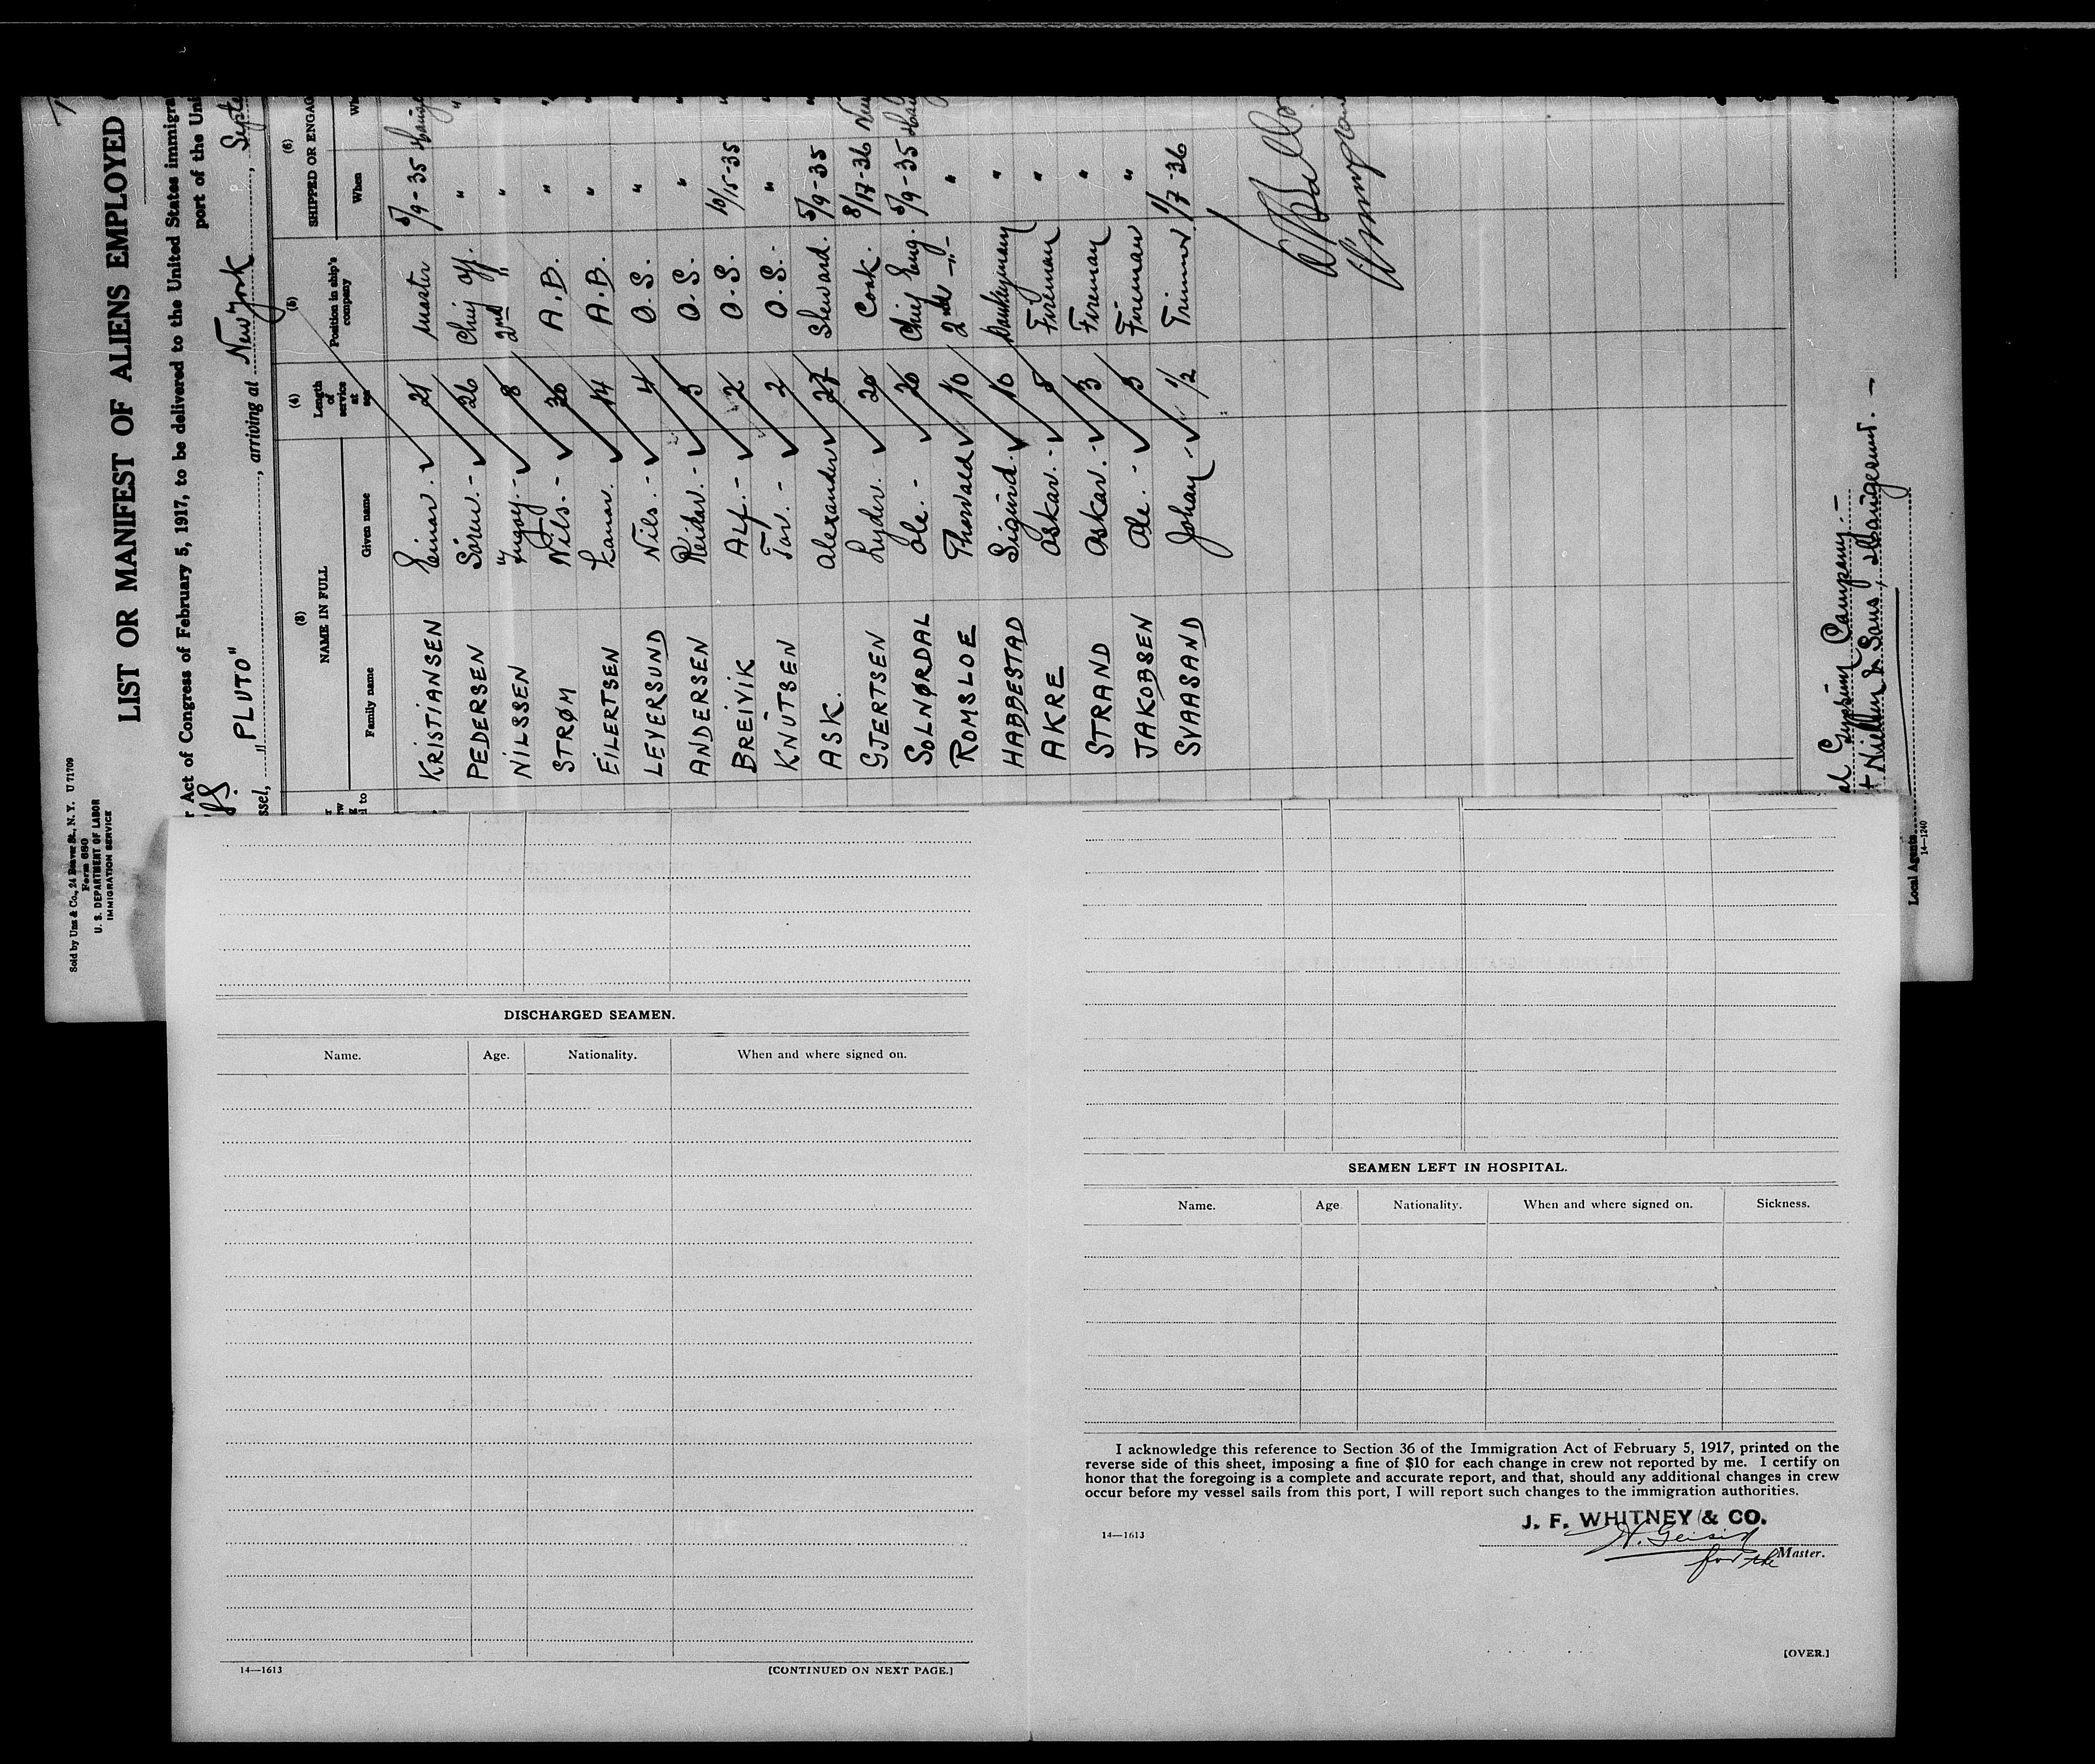 LIST OR MANIFEST OF ALIENS EMPLOYED
Sold by Unz & Co., 24 Beaver St., N. Y. U 71709
Form 680
U. S. DEPARTMENT OF LABOR
IMMIGRATION SERVICE
Act of Congress of February 5, 1917, to be delivered to the United States immigra
port of the Uni
SS
ssel, "PLUTO", arriving at New York, Septe
(3) (4) (5) (6)
NAME IN FULL Length of service at sea Position in ship's company SHIPPED OR ENGAG
Family name Given name When Wh
KRISTIANSEN Einar. - 21 Master 5/9-35 Hauge
PEDERSEN Sören. - 26 Chief off. " "
NILSSEN Yngvy. - 8 2nd " " "
STRØM Nils. - 20 A.B. " "
EILERTSEN 14 A.B. " "
LEVERSUND Nils. - 4 O.S. " "
ANDERSEN Reidar. - 5 O.S. " "
BREIVIK Alf. - 2 O.S. 10/15-35 "
KNUTSEN Tor. - 2 O.S. " "
ASK. Alexander 27 Steward. 5/9-35 "
GJERTSEN Lyder. - 20 Cook. 8/17-36 New
SOLNØRDAL Ole. - 20 Chief Eng. 5/9-35 Haug
ROMSLOE Thorvald 10 2nd -"-  "
HABBESTAD Sigurd. 10 Donkeyman "
AKRE Oskar. - 8 Fireman "
STRAND Oskar. - 3 Fireman "
JAKOBSEN Ole. - 5 Fireman "
SVAASAND Johan - 1/2 Trimmer 1/7-36
al Gypsum Company. -
t Nielsen & Sons, Haugesund. -
Local Agents
14—1240
DISCHARGED SEAMEN.
Name. Age. Nationality. When and where signed on.
14—1613 [CONTINUED ON NEXT PAGE.]
SEAMEN LEFT IN HOSPITAL.
Name. Age. Nationality. When and where signed on. Sickness.
I acknowledge this reference to Section 36 of the Immigration Act of February 5, 1917, printed on the
reverse side of this sheet, imposing a fine of $10 for each change in crew not reported by me. I certify on
honor that the foregoing is a complete and accurate report, and that, should any additional changes in crew
occur before my vessel sails from this port, I will report such changes to the immigration authorities.
J. F. WHITNEY & CO.
14—1613
for the Master.
[OVER.]